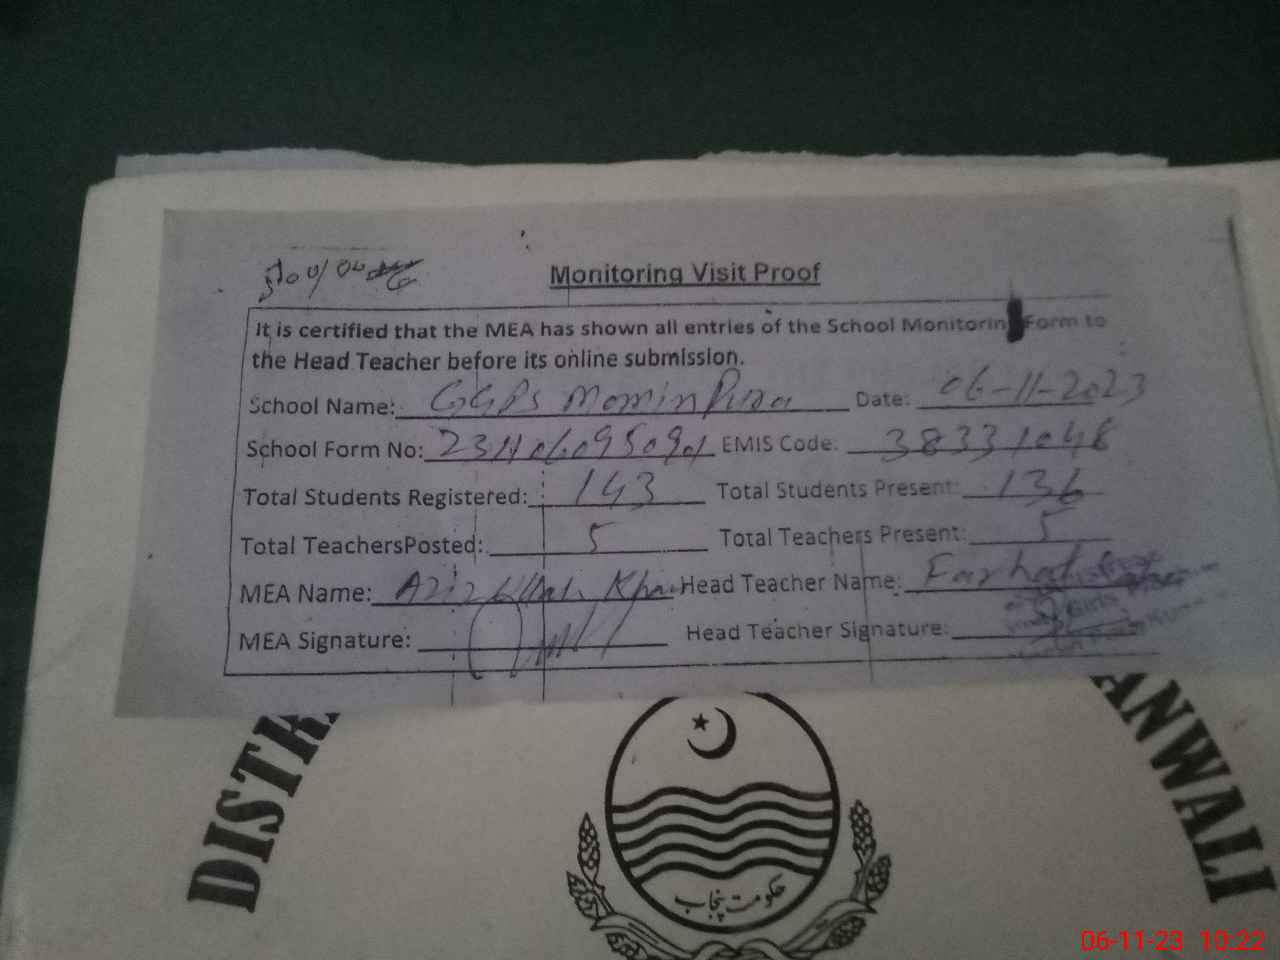 Monitoring Visit Proof
It is certified that the MEA has shown all entries of the School Monitoring Form to
the Head Teacher before its online submission.
School Name: GGPS Momin Pura Date: 06-11-2023
School Form No: EMIS Code: 38331048
Total Students Registered: 143 Total Students Present: 136
Total TeachersPosted: 5 Total Teachers Present: 5
MEA Name: Aziz Ullah Khan Head Teacher Name: Farhat
MEA Signature: Head Teacher Signature:
Girls
حکومت پنجاب
06-11-23 10:22